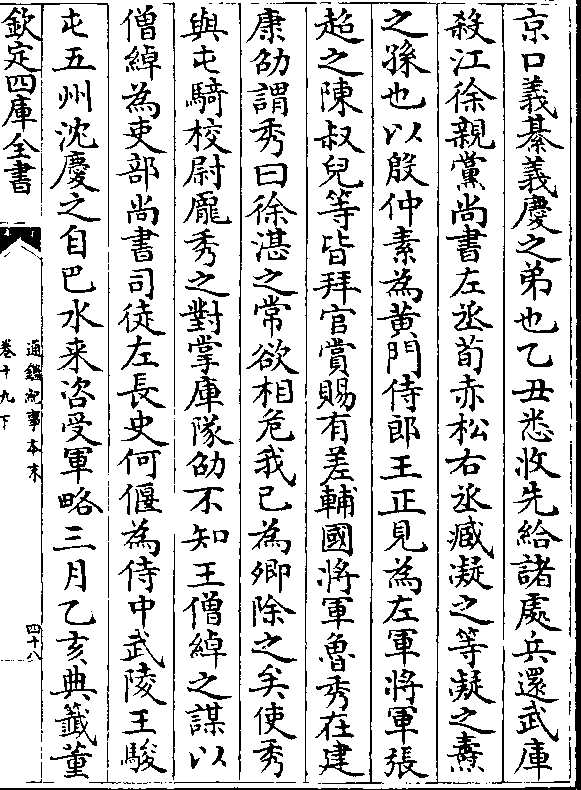 京口義綦義慶之弟也乙丑悉收先給諸處兵還武庫
殺江徐親黨尚書左丞荀赤松右丞臧凝之等凝之燾
之孫也以殷仲素為黄門侍郎王正見為左軍將軍張
超之陳叔兒等皆拜官賞賜有差輔國將軍魯秀在建
康劭謂秀曰徐湛之常欲相危我已為卿除之矣使秀
與屯騎校尉龐秀之對掌庫隊劭不知王僧綽之謀以
僧綽為吏部尚書司徒左長史何偃為侍中武陵王駿
屯五州沈慶之自巴水来咨受軍略三月乙亥典籤董
欽定四庫全書
通鑑紀事本末
卷十九下
四十八